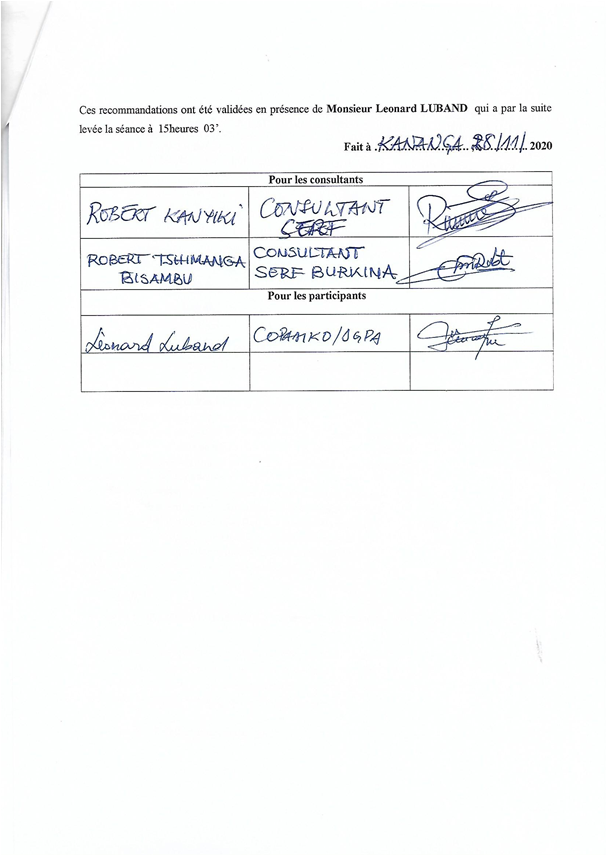 Ces recommandations ont été validées en présence de Monsieur Leonard LUBAND qui a par la suite
levée la séance à 15heures 03'.
Fait à KANANGA, 28/11/ 2020
Pour les consultants
ROBERT KANYIKI CONSULTANT
SERF
ROBERT TSHIMANGA CONSULTANT
BISAMBU SERF BURKINA
Pour les participants
Léonard Luband COPAMKO/OGPA